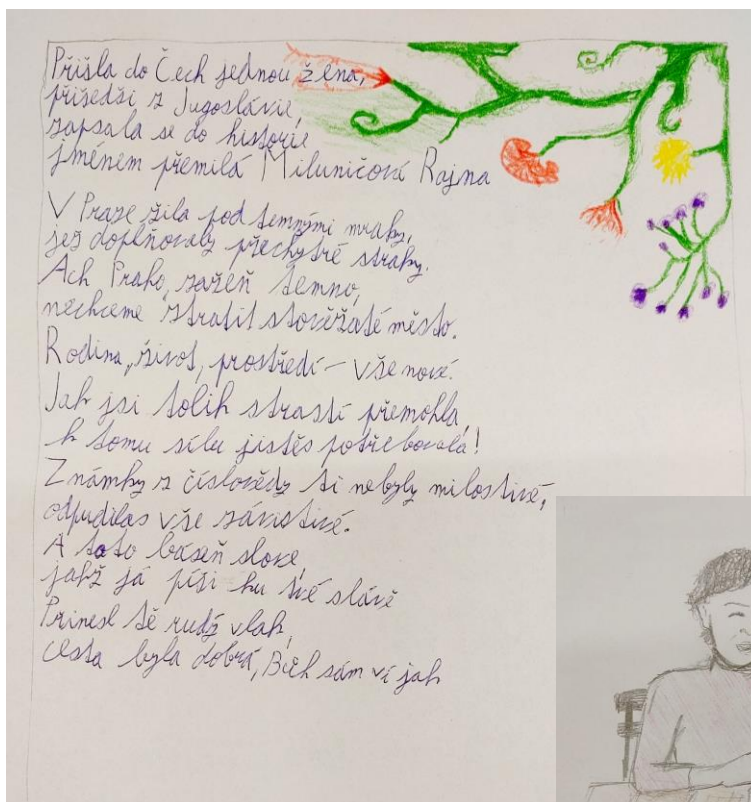 Přišla do Čech jednou žena,
přišedši z Jugoslávie,
zapsala se do historie
jménem přemilá Miluničová Rajna
V Praze žila pod temnými mraky,
jež doplňovaly přechytré straky.
Ach Praho, zažeň temno,
nechceme ztratit stověžaté město.
Rodina, život, prostředí – vše nové.
Jak jsi tolik strastí přemohla,
k tomu sílu jistěs potřebovala!
Známky z číslovědy ti nebyly milostivé,
odpudilas vše závistivé.
A tato báseň slove,
jakž já píši ku tvé slávě
Prinesl tě rudý vlak,
cesta byla dobrá, Bůh sám ví jak